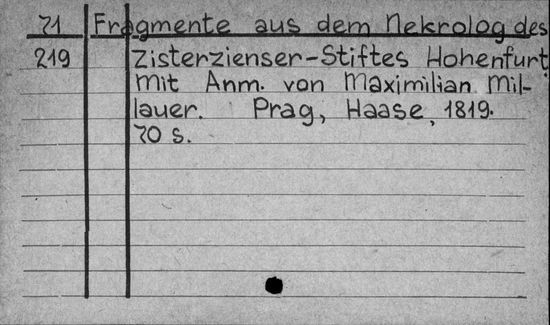 71 Fragmente aus dem Nekrolog des
219 Zisterzienser-Stiftes Hohenfurt
Mit Anm. von Maximilian Mil-
lauer. Prag, Haase, 1819.
70 S.